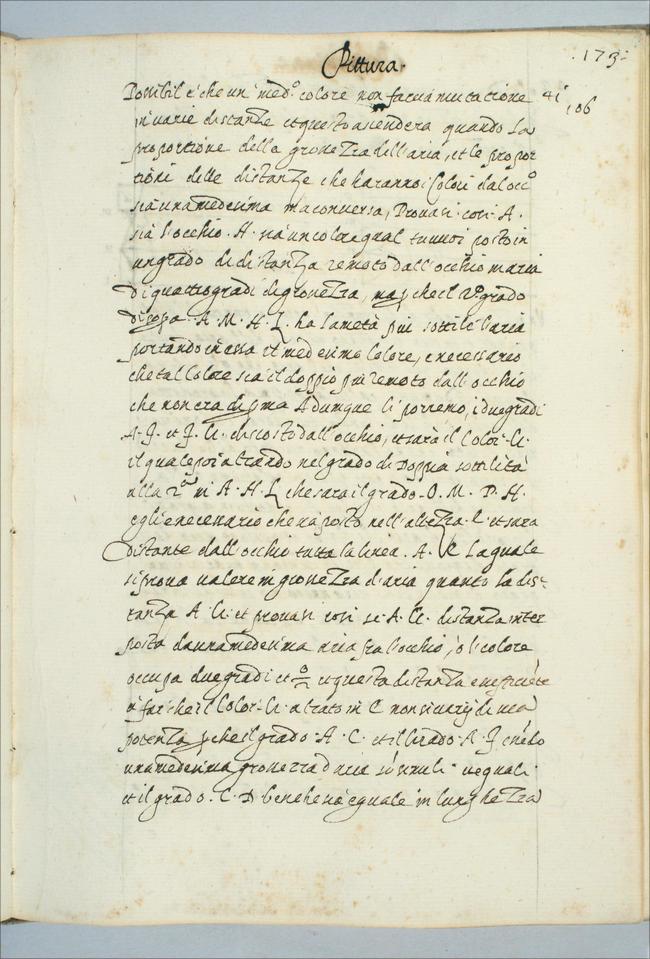 Pittura.
.173.
Possibil è che un med.º colore non faccia mutatione 41
in varie distanze et questo accenderà quando la 106
proportione della grossezza dell'aria, et le propor
tioni delle distanze che haranno i Colori dal occº
sia una medesima ma conversa, Provasi così. A.
sia l'occhio. H. sia un colore qual tu vuoi posto in
un grado di distanza remoto dall'occhio in aria
di quattro gradi di grossezza, ma perche il 2º grado
di sopra. A. M. H. L. ha la metà più sottile l'aria
portando in essa il medesimo Colore, è necessario
che tal Colore sia il doppio più remoto dall'occhio
che non era di pma Adumque li porremo, i due gradi
A. F. et F. G. discosto dall'occhio, et sarà il Color. G.
il quale poi alzando nel grado di Doppia sottilità
alla 2ª in A. H. L. che sarà il grado. O. M. P. H.
egli è necessario che sia posto nell'altezza. E. et sarà
Distante dall'occhio tutta la linea. A. E. la quale
si prova valere in grossezza d'aria quanto la dis-
tanza A. G. et provasi così se. A. G. distanza inter
posta da una medesima aria fra l'occhio, e'l colore
occupa due gradi et
et questa distanza è
à far che il Color. G. alzato in E non si varij di sua
potenza perche il grado. A. C. et il Grado. A. F. essendo
una medesima grossezza d'aria, sò simili et eguali
et il grado. C. D benche sia eguale in lunghezza